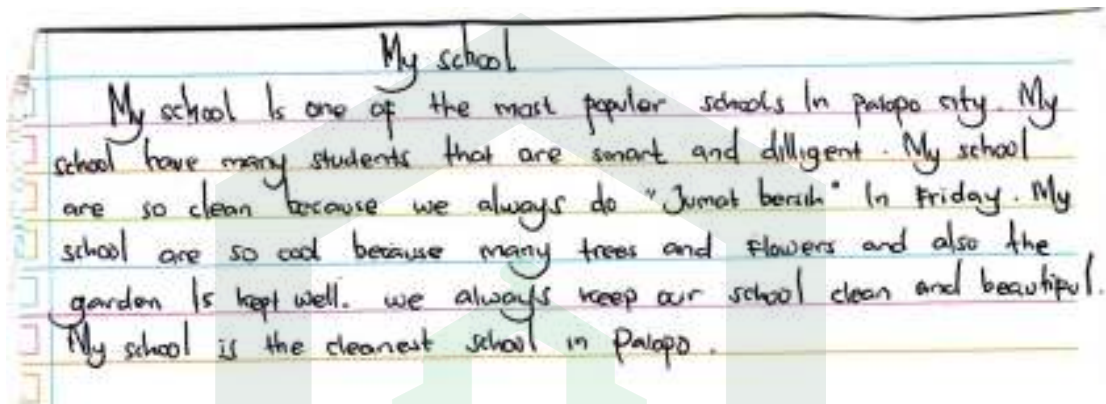 My school
My school Is one of the most populer schools In palopo city. My
school have many students that are smart and dilligent. My school
are so clean because we always do "Jumat bersih" In Friday. My
school are so cool because many trees and Flowers and also the
garden Is kept well. we always keep our school clean and beautiful.
My school is the cleanest school in Palopo.